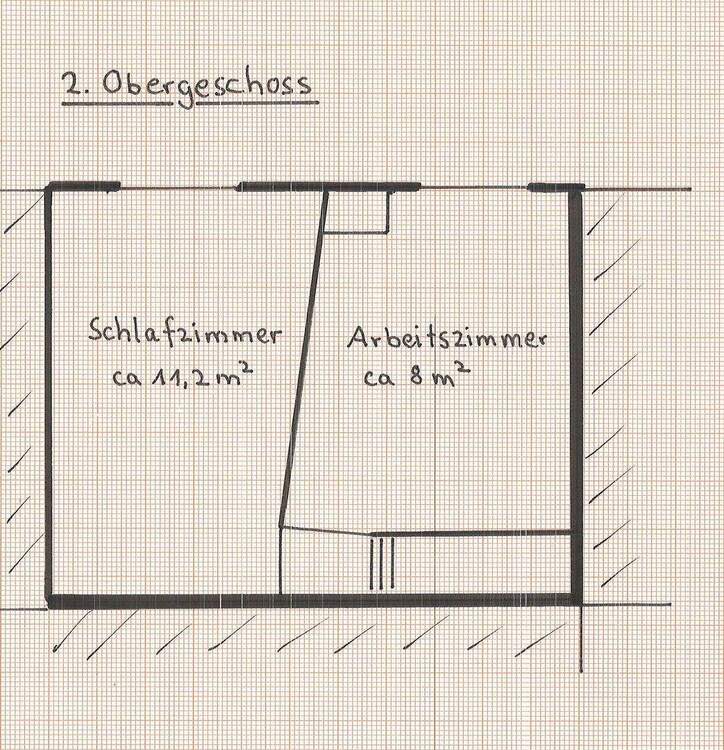 2. Obergeschoss
Schlafzimmer
ca 11,2 m²
Arbeitszimmer
ca 8 m²